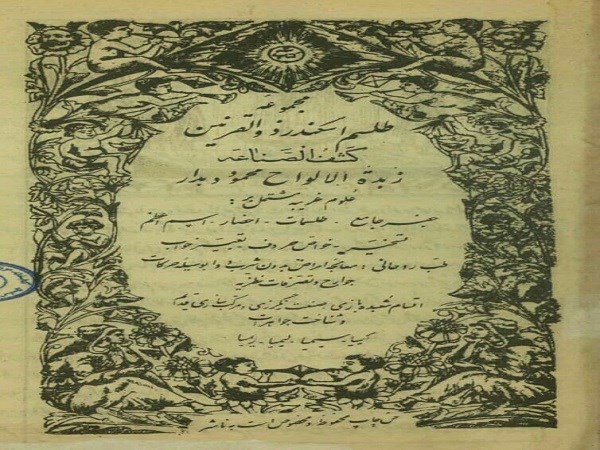 مجموعه
طلسم اسکندر ذوالقرنین
کشف الصناعه
زبدة الالواح محمود دهدار
علوم غریبه مشتمل بر:
جفر جامع - طلسمات - احضار - اسم اعظم
تسخیر - خواص حروف - تعبیر خواب
طب روحانی: معالجه امراض بدون شربت و دوا بوسیله حرکات
جوارح و تصرفات نظریه
اقسام شعبده بازی، صنعت رنگرزی، مرکب سازی
و شناخت جواهرات
کیمیا - سیمیا - لیمیا - ریمیا
حق چاپ محفوظ و مخصوص است به ناشر